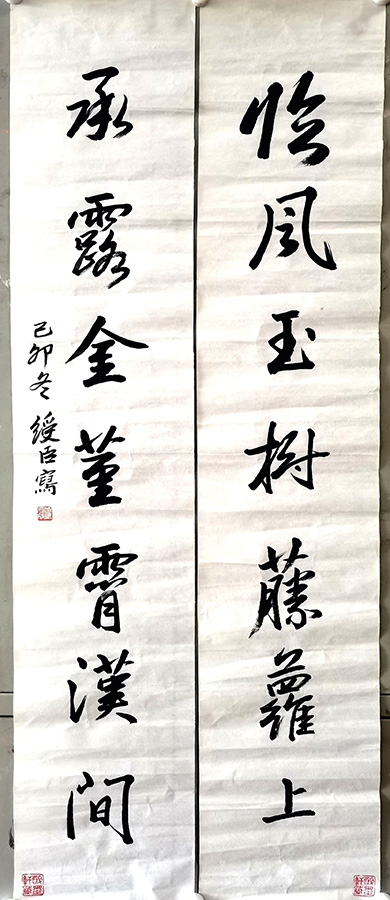 临风玉树藤蘿上
承露金莖霄漢間
己卯冬 綬臣寫